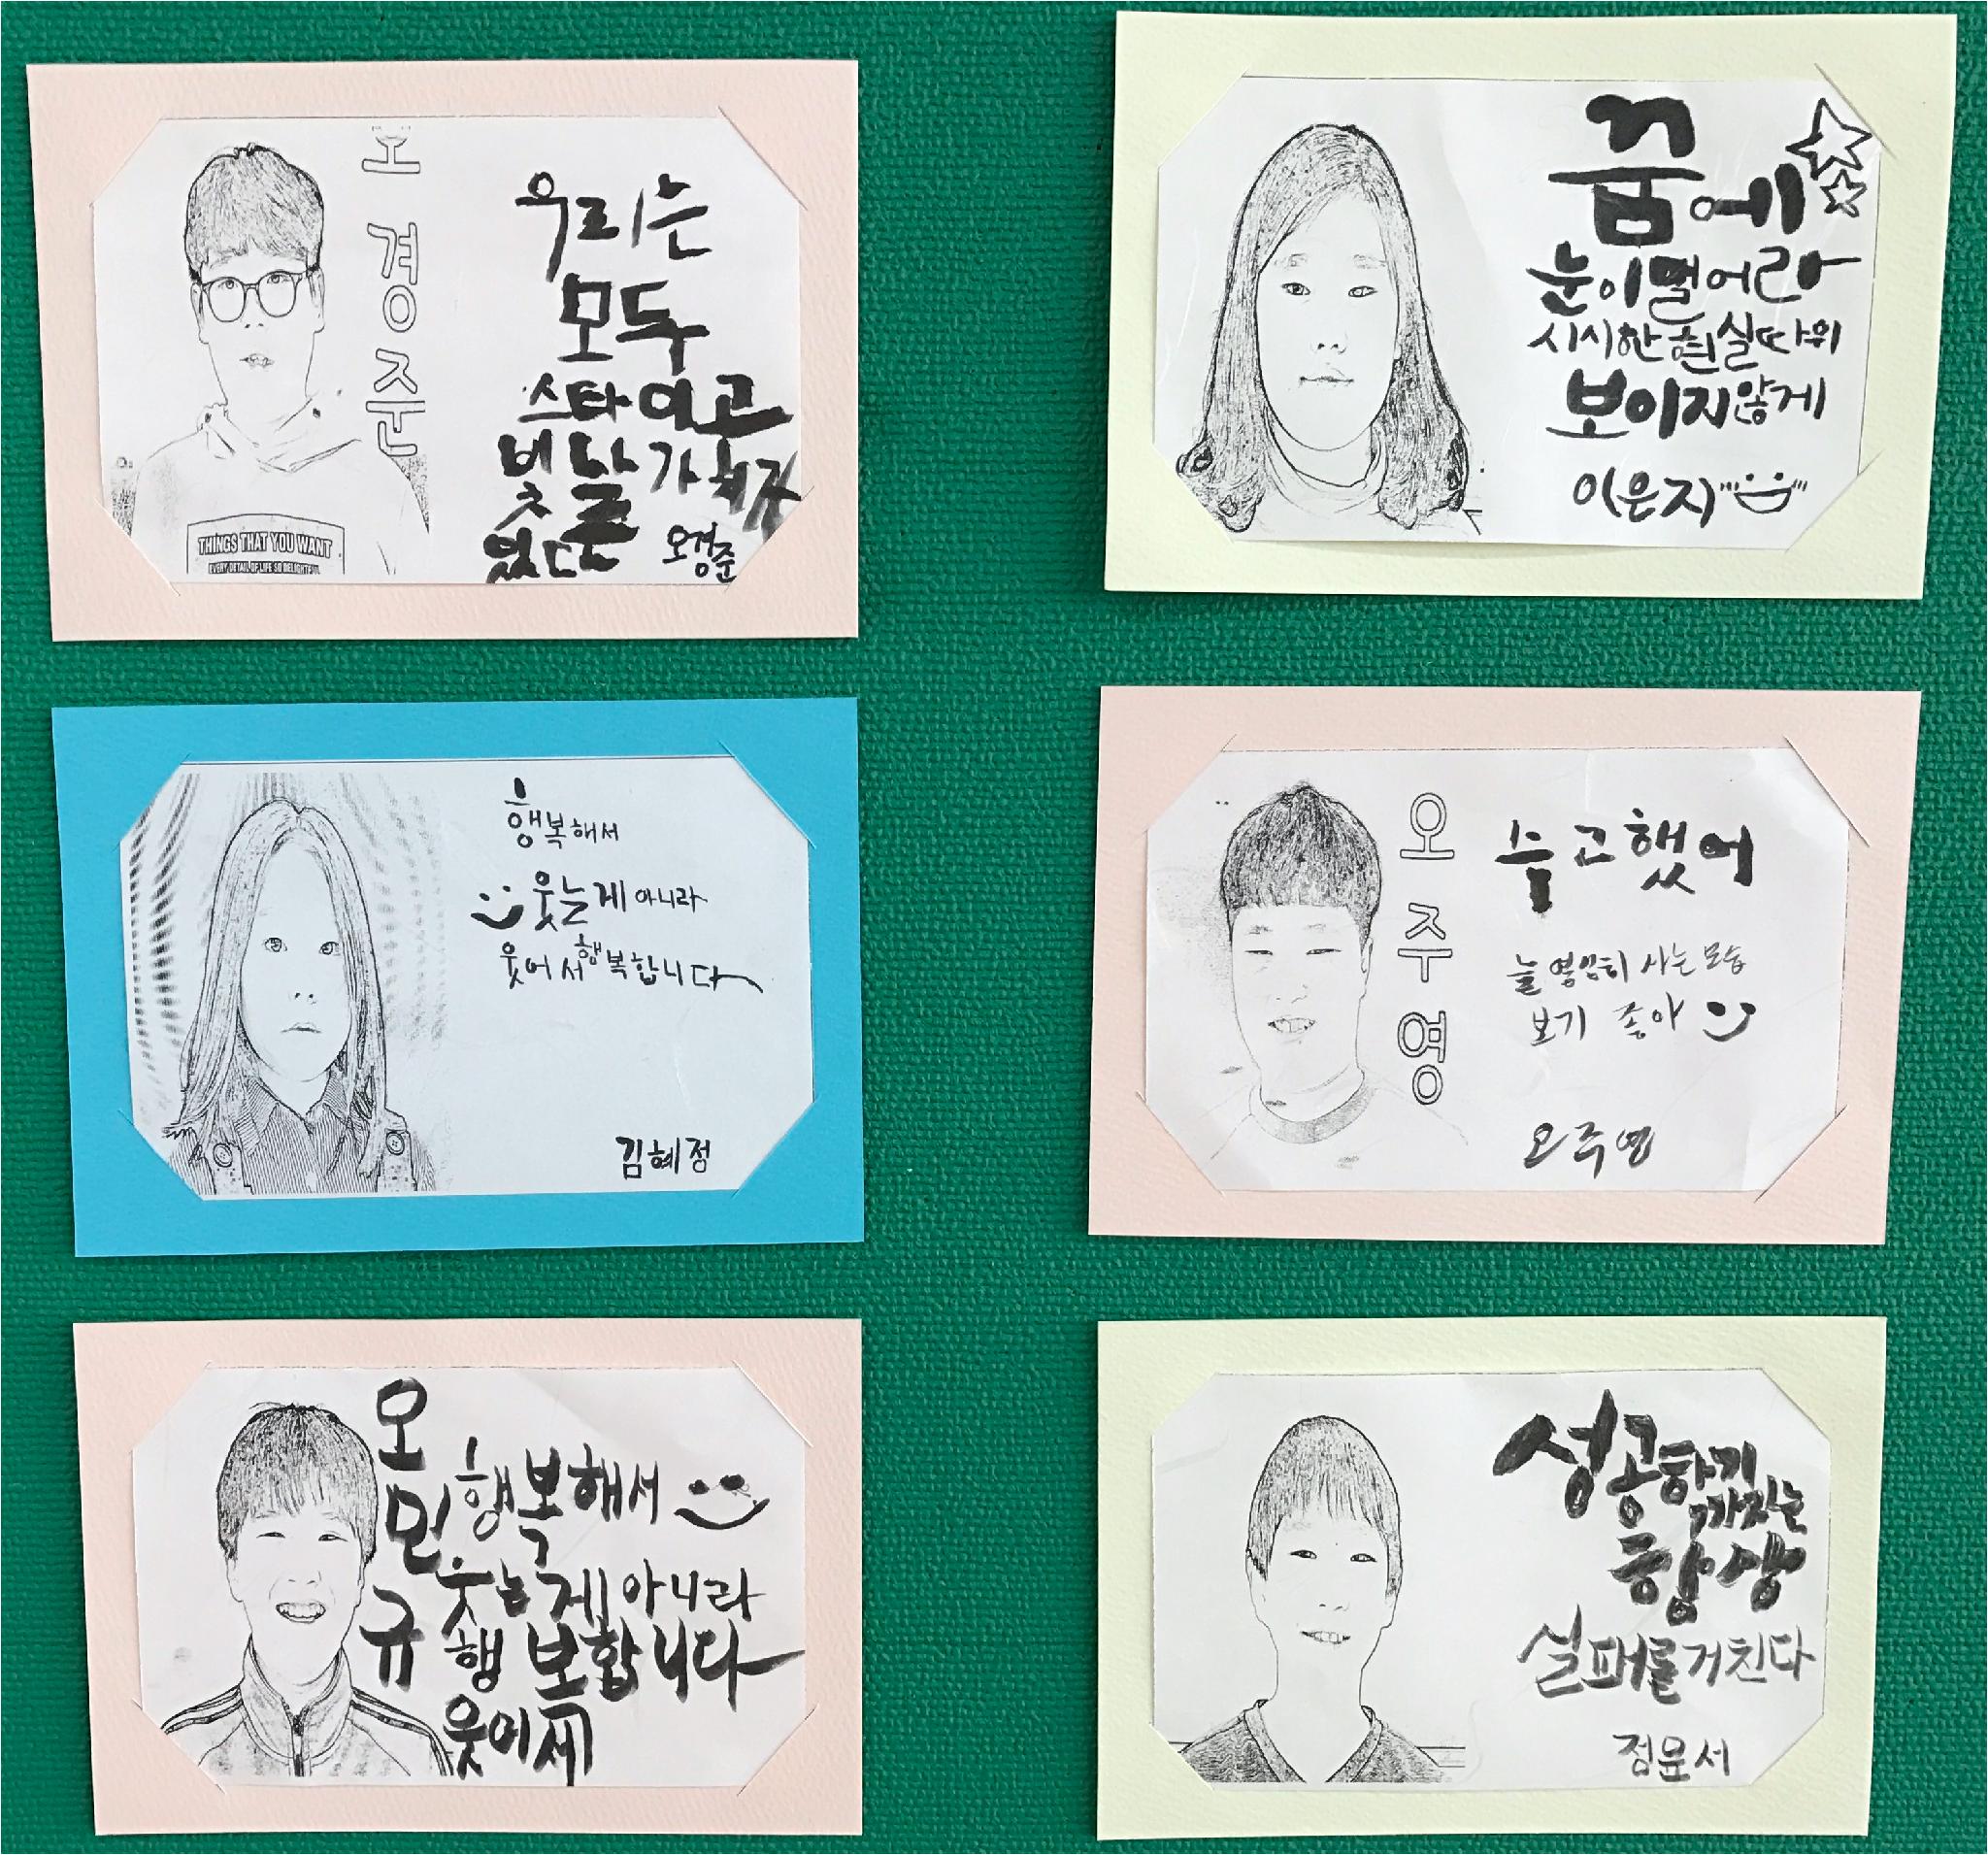 오
경
준
우리는
모두
스타이고
빛날 가치가
있다
오경준
THINGS THAT YOU WANT
EVERY DETAIL OF LIFE SO DELIGHTFUL
꿈에
눈이멀어라
시시한현실따위
보이지않게
이은지
행복해서
웃는게 아니라
웃어서행복합니다
김혜정
오
주
영
수고했어
늘 열심히 사는 모습
보기 좋아
오주영
오
민
규
행복해서
웃는게아니라
행복합니다
웃어서
성공하기
까지는
항상
실패를거친다
정문서